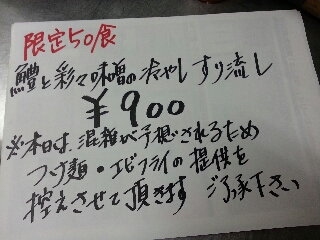 限定50食
鱧と彩々味噌の冷やしすり流し
¥900
※本日は、混雑が予想されるため
つけ麺・エビフライの提供を
控えさせて頂きます ご了承下さい